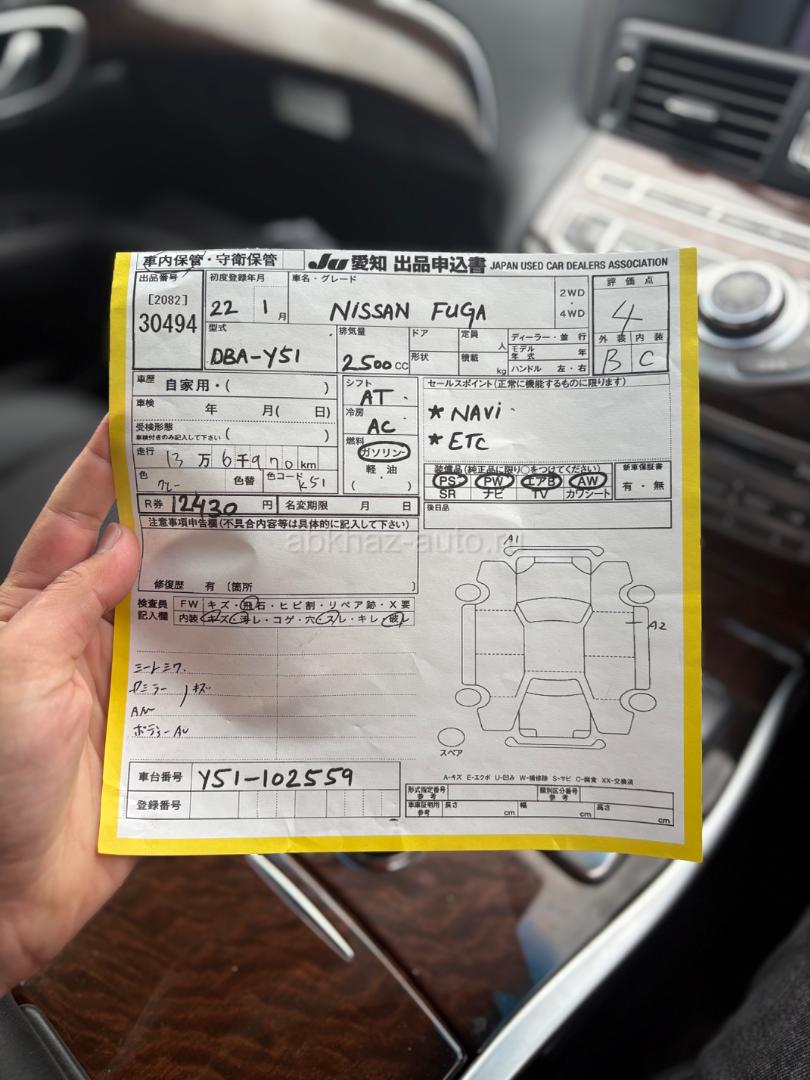 車内保管・守衛保管 JU 愛知 出品申込書 JAPAN USED CAR DEALERS ASSOCIATION
出品番号 初度登録年月 車名・グレード 評価点
[2082] 22 1月 NISSAN FUGA 2WD・4WD 4
30494 型式 排気量 ドア 定員 人 ディーラー・並行 外装 内装
DBA-Y51 2500CC 形状 積載 kg モデル年式 年 B C
ハンドル 左・右
車歴 自家用・( ) シフト AT セールスポイント(正常に機能するものに限ります)
車検 年 月( 日) 冷房 AC ★NAVi
受検形態 ( ) ★ETC
車検付きのみ記入して下さい
燃料 ガソリン・軽油・( )
走行 13万6千970km 装備品(純正品に限り○をつけてください) 新車保証書
色 グレー 色替 色コード K51 PS PW エアB AW 有・無
SR ナビ TV カワシート
R券 12430円 名変期限 月 日 後日品
注意事項申告欄(不具合内容等は具体的に記入して下さい)
abkhaz-auto.r
A1
修復歴 有 (箇所
検査員 FW キズ・飛石・ヒビ割・リペア跡・X要
記入欄 内装 キズ・汚レ・コゲ・穴・スレ・キレ・破レ
A2
キズ
スペア
車台番号 Y51-102559
A-キズ E-エクボ U-凹み W-補修跡 S-サビ C-腐食 XX-交換済
登録番号 形式指定番号 参考 類別区分番号 参考
車庫証明用 参考 長さ cm 幅 cm 高さ cm